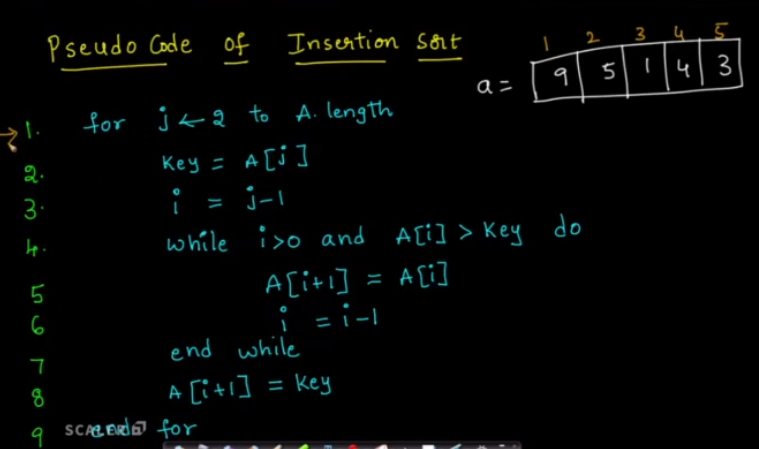 Pseudo Code of Insertion Sort
1 2 3 4 5
a = 9 5 1 4 3
1. for j ← 2 to A.length
2. Key = A[j]
3. i = j-1
4. while i>0 and A[i] > Key do
5 A[i+1] = A[i]
6 i = i-1
7 end while
8 A[i+1] = Key
9 end for
SCALER